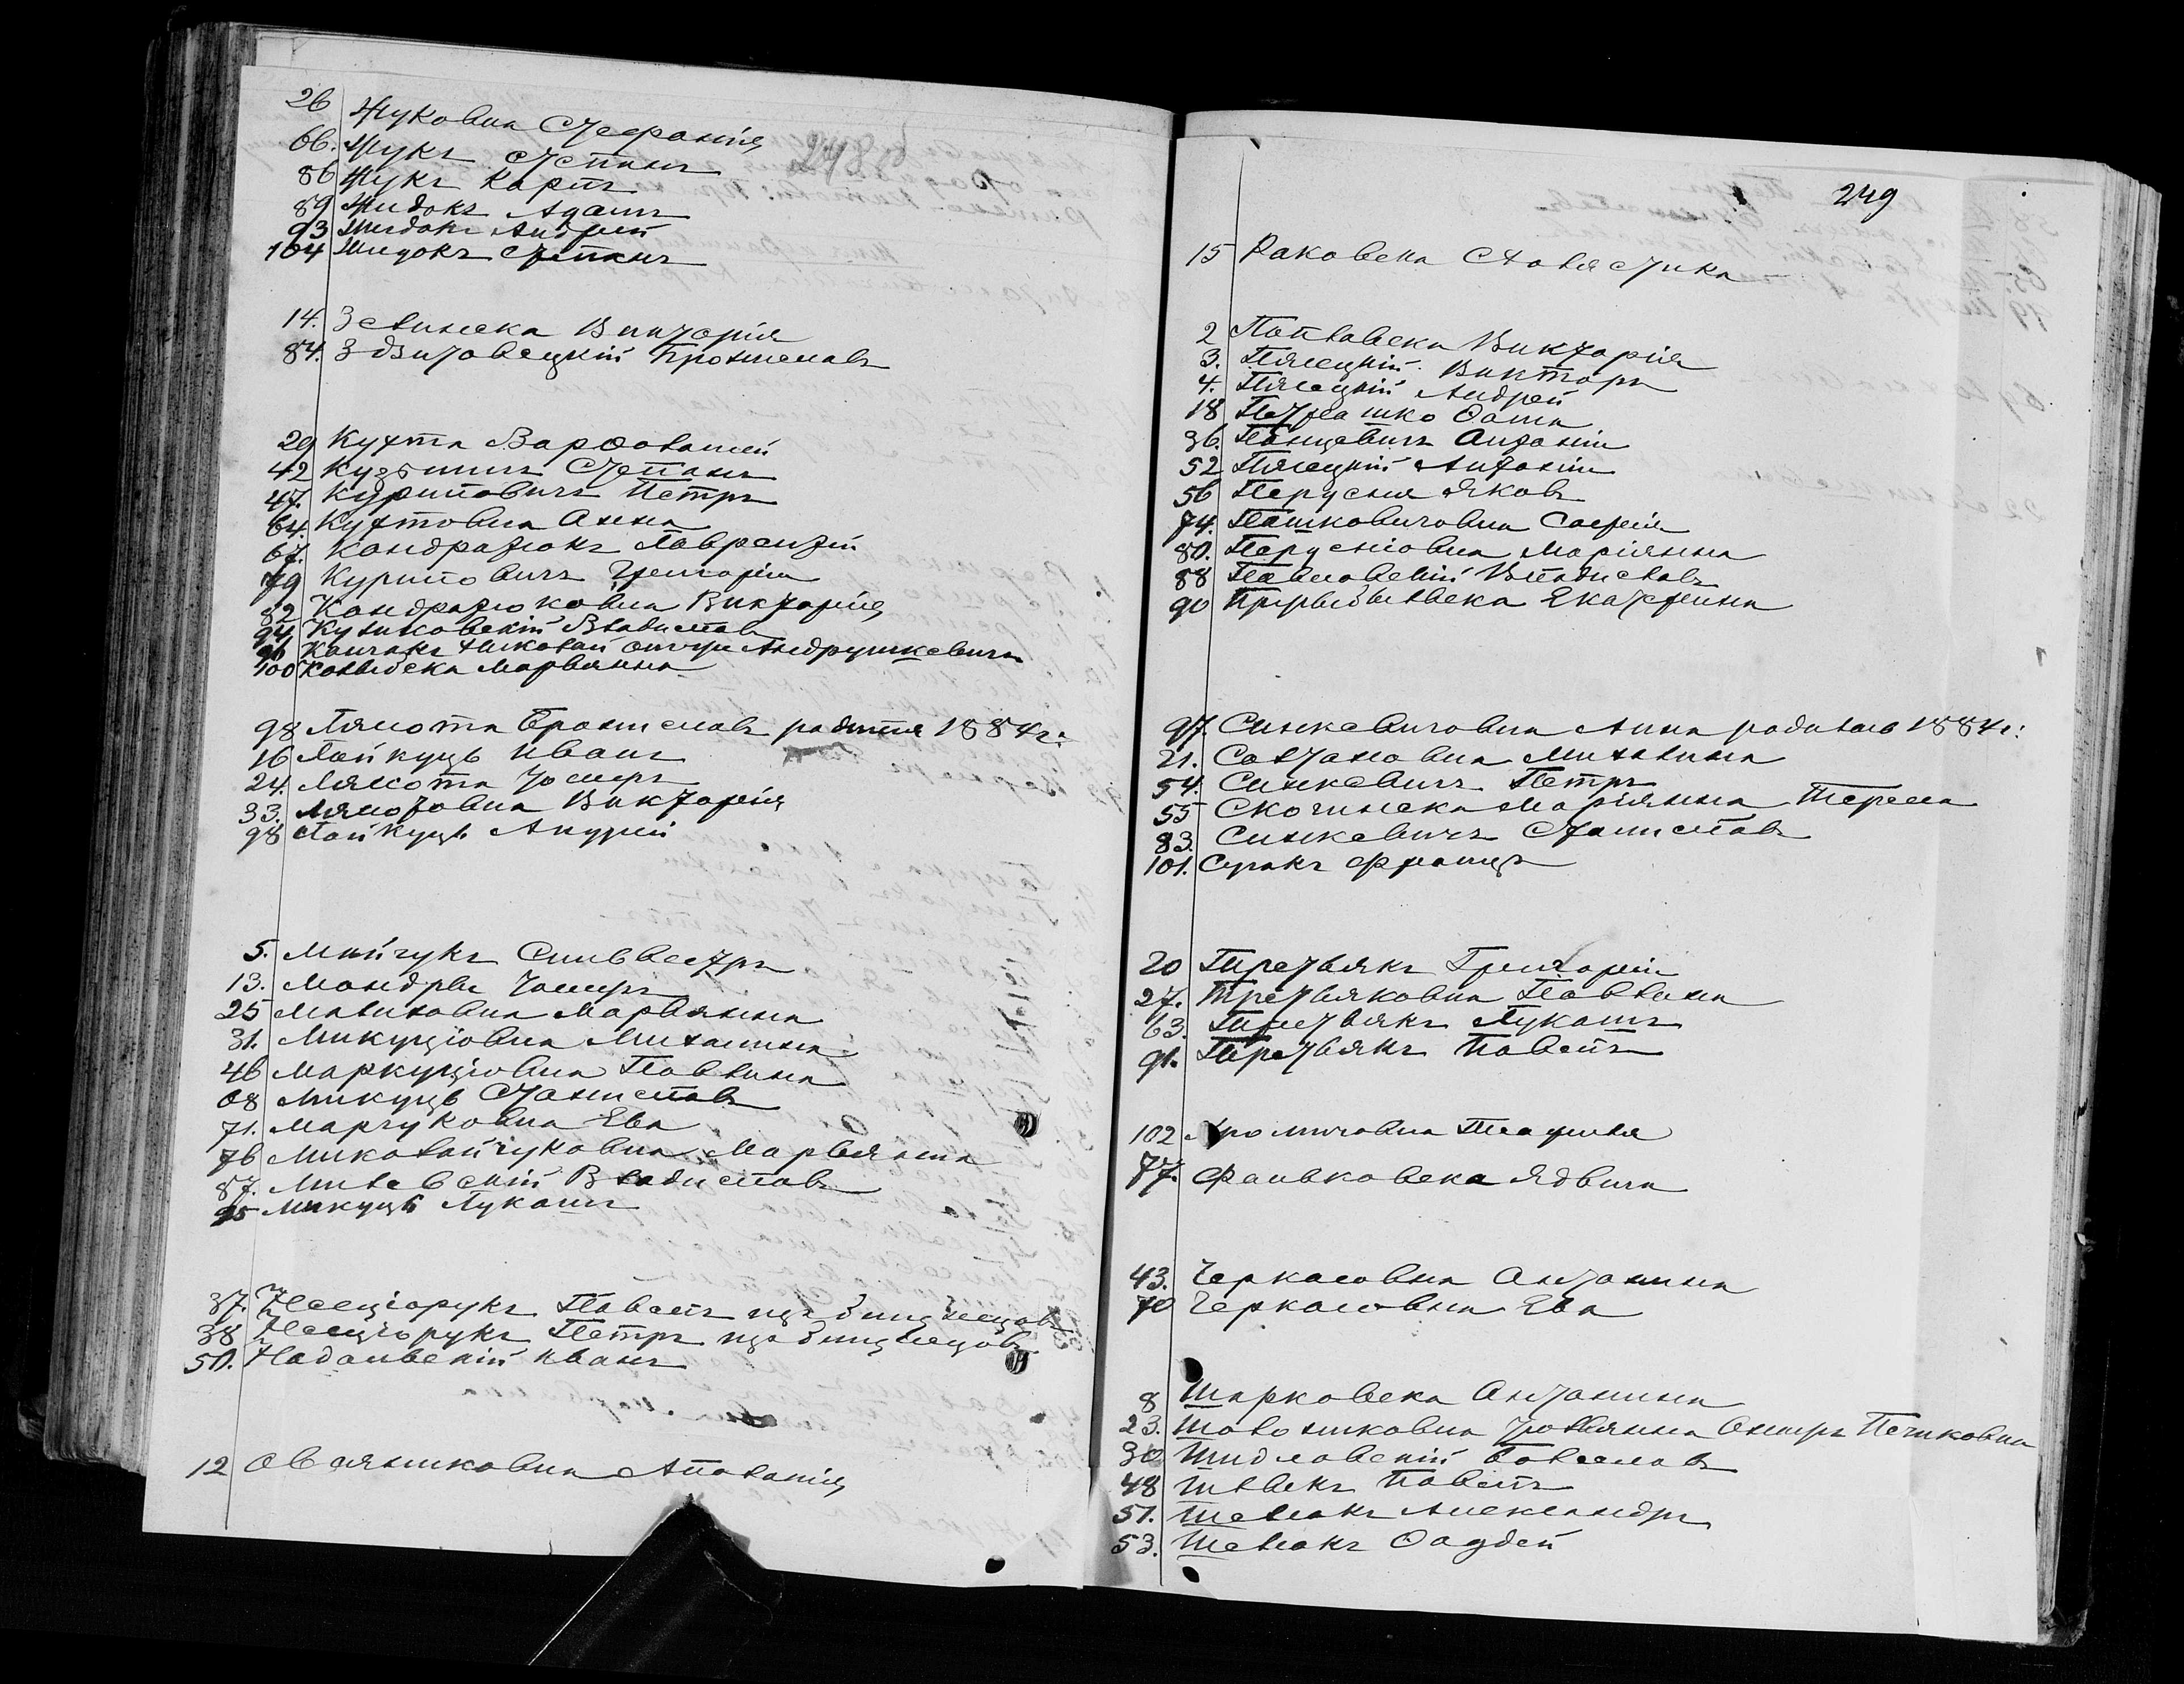 248
26 Жуковна Стефанія
66. Жукъ Степанъ
86 Жукъ Карпъ
89 Жидокъ Адамъ
93 Жидокъ Андрей
104 Жидокъ Степанъ
14. Зелинска Викторія
84. Здзитовецкій Брониславъ
29 Кухта Варфоломей
42 Кузьмичъ Степанъ
47. Куриловичъ Петръ
64. Кухтовна Анна
67. Кондратюкъ Лаврентій
79 Куриловичъ Григорій
82 Кондратюковна Викторія
94. Кулиновскій Владиславъ
96 Николай Андрушкевичъ
100 Марьянна
98 Лямота Брониславъ родился 1884 г:
16 Лайкуць Иванъ
24. Лямота Іосифъ
33. Лямотовна Викторія
98 Лайкуць Андрей
5. Мойчукъ Сильвестръ
13. Мондры Іосифъ
25 Малиховна Марьянна
31. Микуціовна Михалина
46 Маркуціовна Павлина
68 Микуць Станиславъ
71. Марчуковна Ева
76 Миколайчуковна Марьянна
87. Милевскій Владиславъ
95 Микуць Лукашъ
37. Несціорукъ Павелъ
38 Несціорукъ Петръ
50. Надольскій Иванъ
12 Овсянниковна Аполонія
249
15 Раковска Схолястика
2 Поплавска Викторія
3. Пясецкій Викторъ
4. Пясецкій Андрей
18 Петрашко Фома
36. Панцевичъ Антоній
52 Пясецкій Антоній
56 Перусня Яковъ
74. Пашковичовна Софія
80. Перусніовна Маріянна
88 Павловскій Владиславъ
90 Екатерина
97. Синкевичовна Анна родилась 1884 г:
21. Солтановна Михалина
54. Синкевичъ Петръ
55 Скочинска Маріянна Тереса
83. Синкевичъ Станиславъ
101. Сулакъ Францъ
20 Третьякъ Григорій
27. Третьяковна Павлина
63. Третьякъ Лукашъ
91. Третьякъ Павелъ
102 Теофиля
77. Фальковска Ядвига
43. Черкасовна Антонина
70 Черкасовна Ева
8 Шарковска Антонина
23. Шолошковна Юльянна Онифръ Печковна
30 Шидловскій Болеславъ
48 Шлыкъ Павелъ
51. Шелюкъ Александръ
53. Шелюкъ Фадей